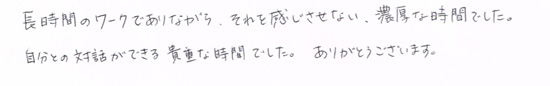 長時間のワークでありながら、それを感じさせない、濃厚な時間でした。
自分との対話ができる貴重な時間でした。 ありがとうございます。